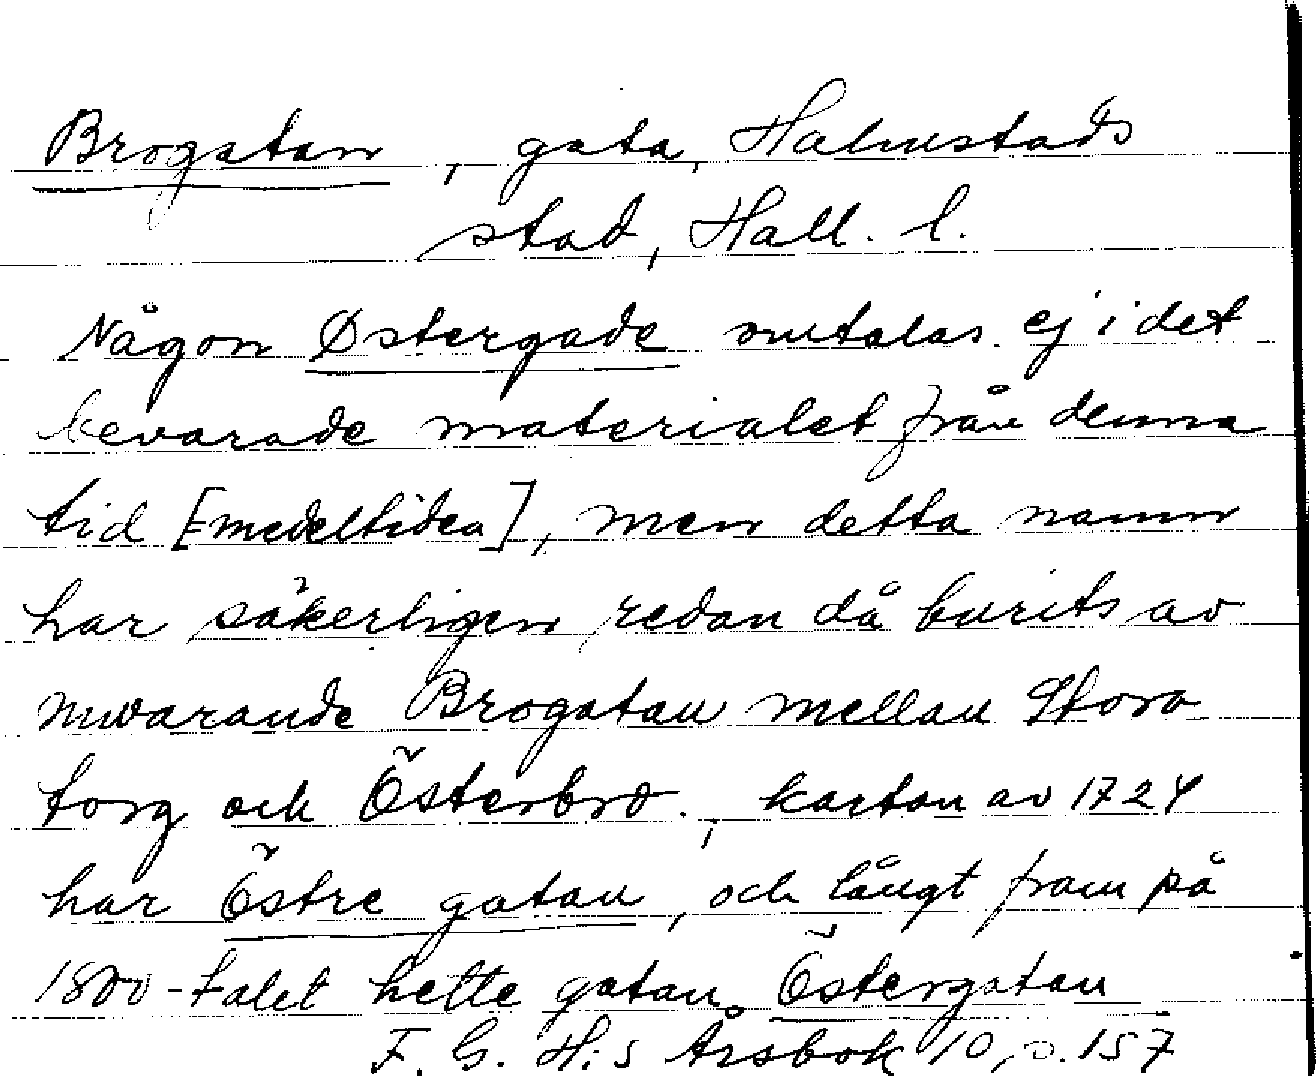 Brogatan, gata, Halmstads
stad, Hall. l.
Någon Østergade omtalas ej i det
bevarade materialet från denna
tid [=medeltiden], men detta namn
har säkerligen redan då burits av
nuvarande Brogatan mellan Stora
torg och Österbro., kartan av 1724
har Östre gatan, och långt fram på
1800-talet hette gatan Östergatan
F. G. H:s Årsbok 10, s. 157